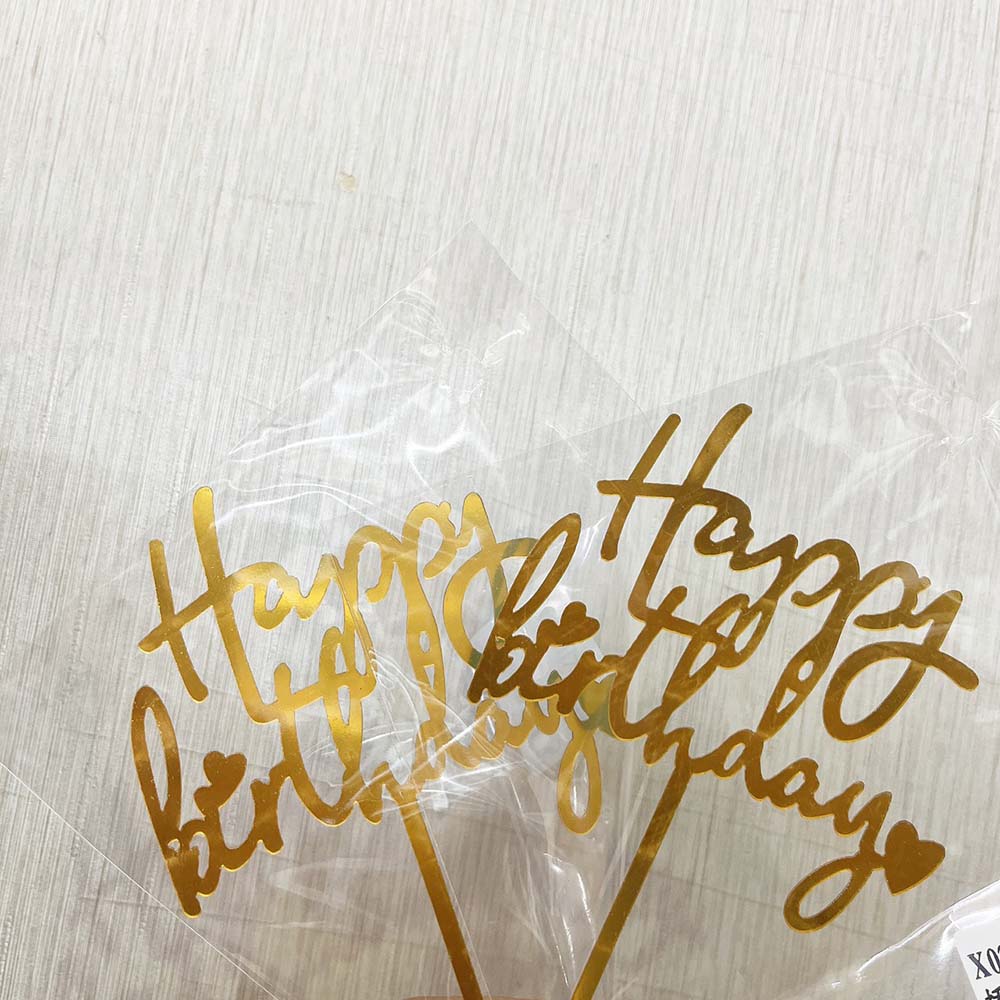 Happy
birthday
Happy
birthday